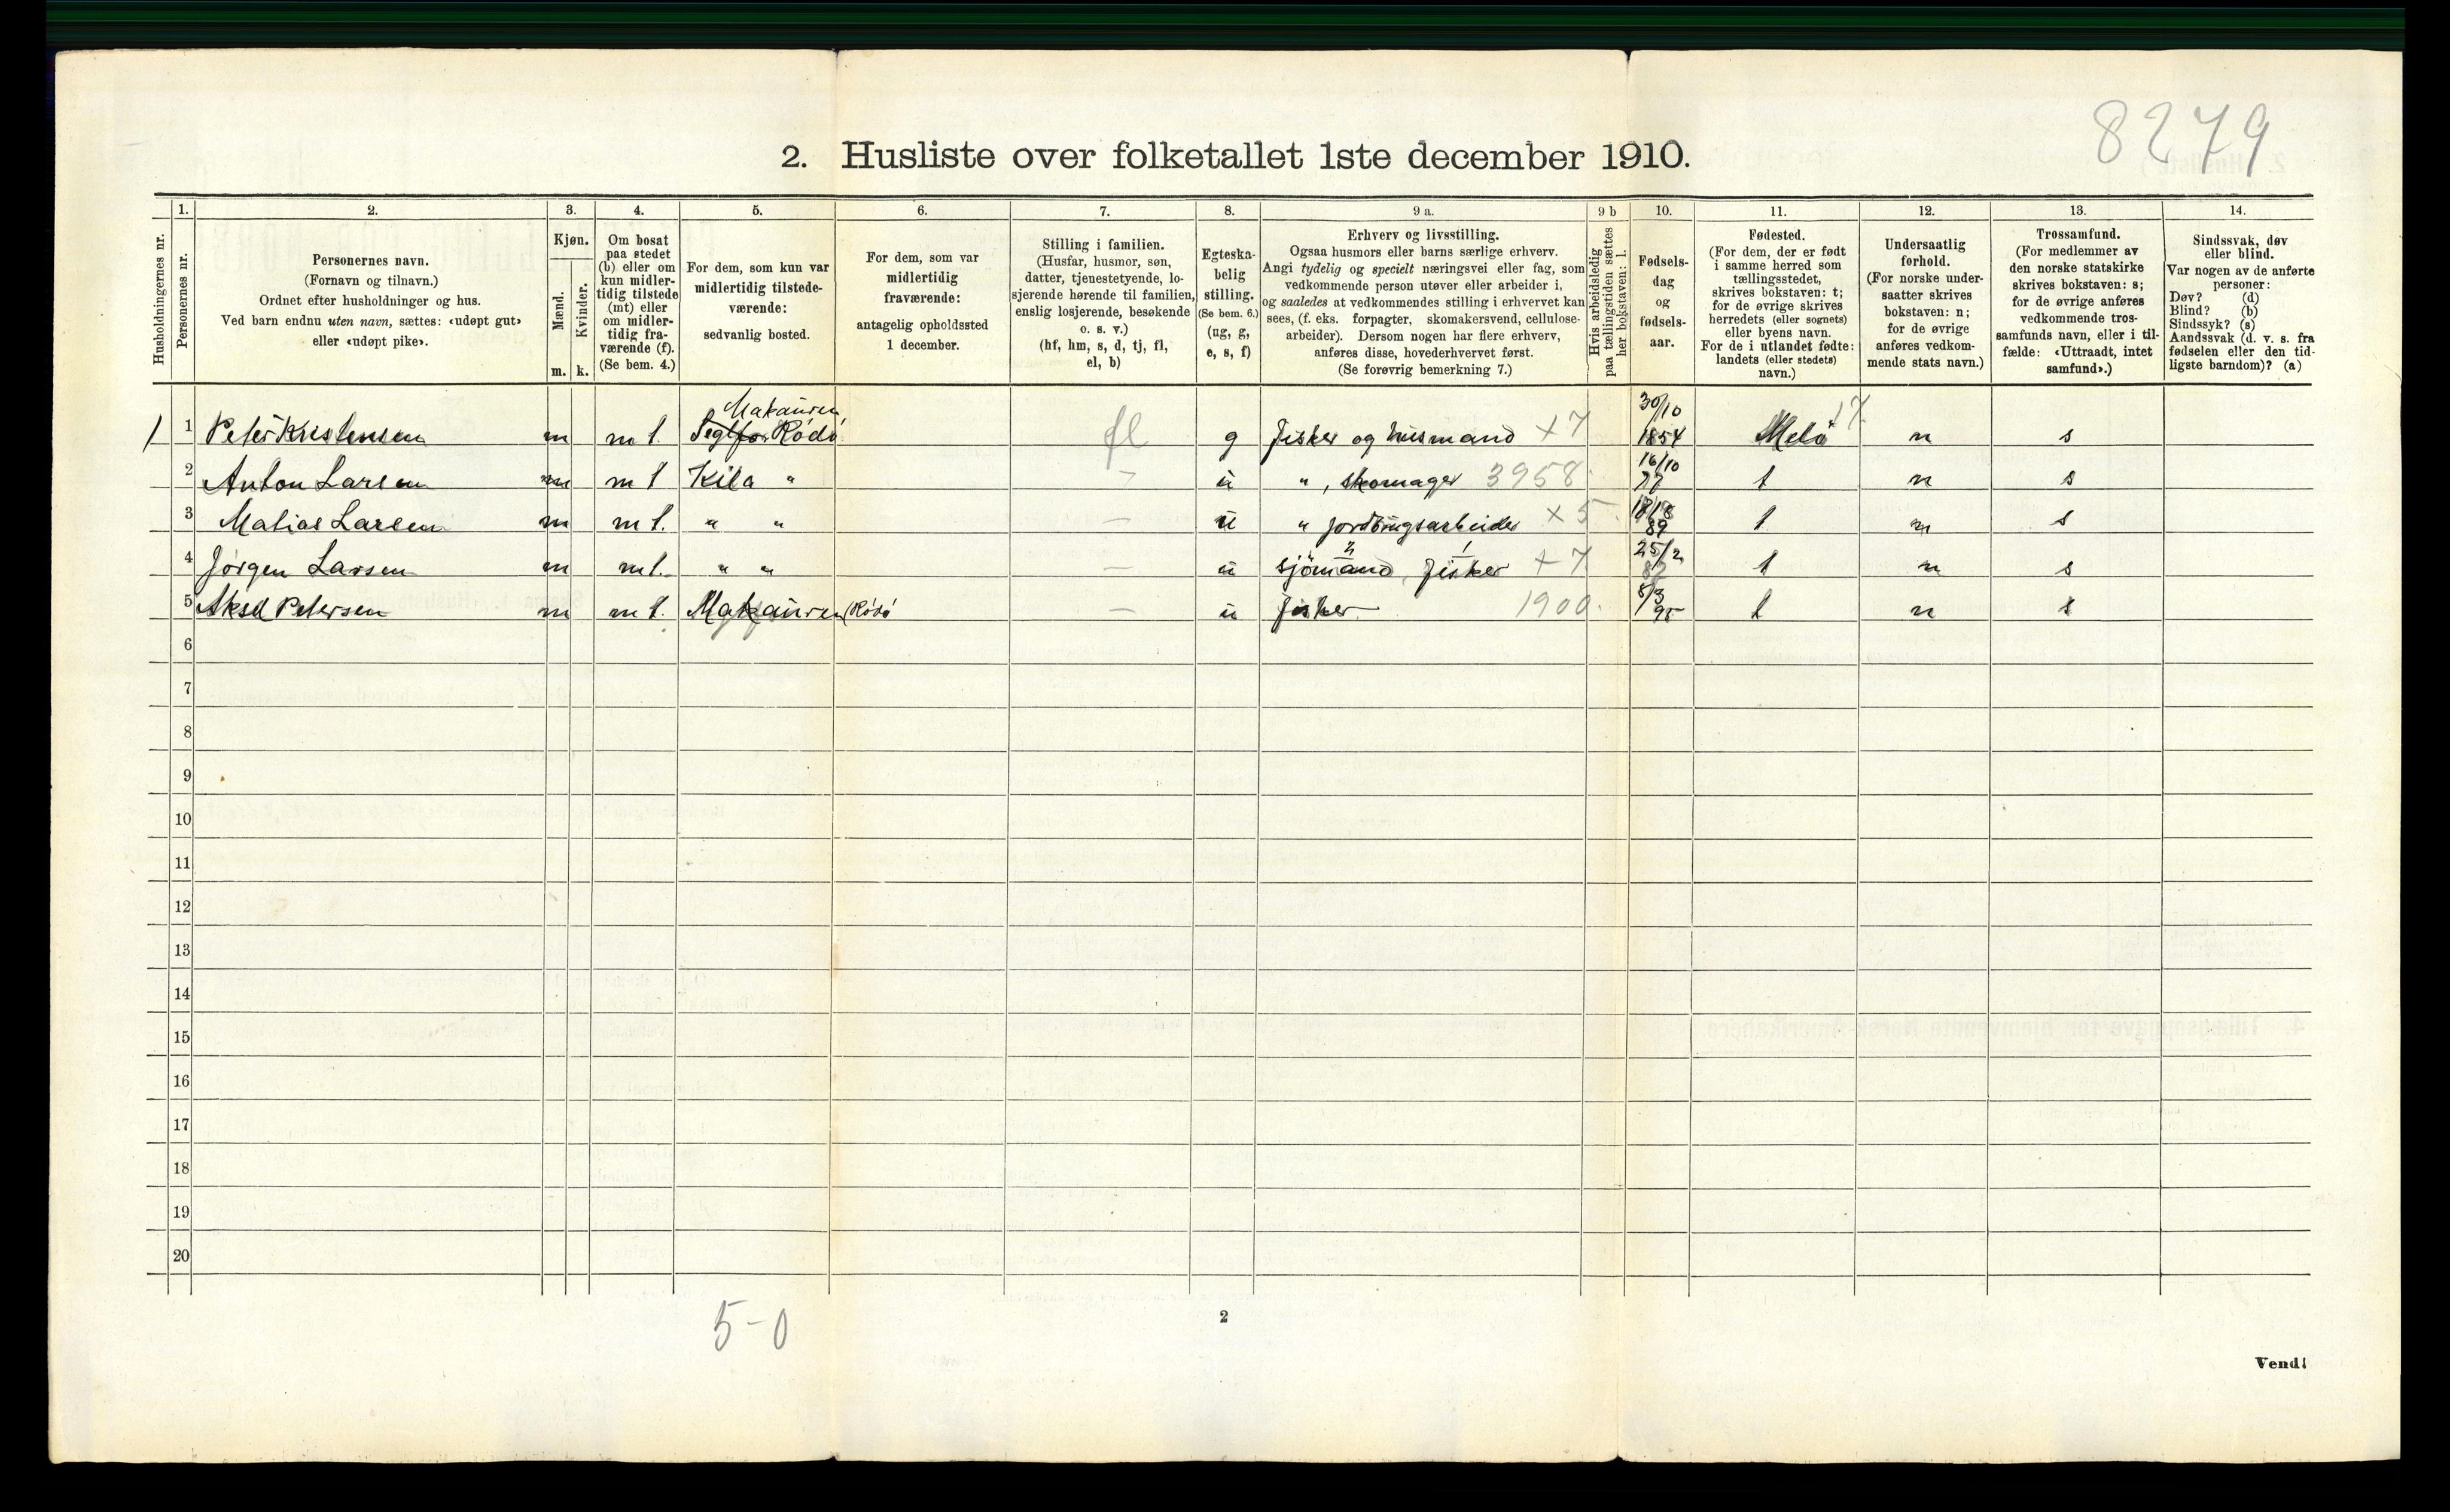 8279
2. Husliste over folketallet 1ste december 1910.
Husholdningernes nr.
1. Personernes nr.
2. Personernes navn.
(Fornavn og tilnavn.)
Ordnet efter husholdninger og hus.
Ved barn endnu uten navn, sættes: «udøpt gut»
eller «udøpt pike».
3. Kjøn.
Mænd. Kvinder.
m. k.
4. Om bosat
paa stedet
(b) eller om
kun midler-
tidig tilstede
(mt) eller
om midler-
tidig fra-
værende (f).
(Se bem. 4.)
5. For dem, som kun var
midlertidig tilstede-
værende:
sedvanlig bosted.
6. For dem, som var
midlertidig
fraværende:
antagelig opholdssted
1 december.
7. Stilling i familien.
(Husfar, husmor, søn,
datter, tjenestetyende, lo-
sjerende hørende til familien,
enslig losjerende, besøkende
o. s. v.)
(hf, hm, s, d, tj, fl,
el, b)
8. Egteska-
belig
stilling.
(Se bem. 6.)
(ug, g,
e, s, f)
9 a. Erhverv og livsstilling.
Ogsaa husmors eller barns særlige erhverv.
Angi tydelig og specielt næringsvei eller fag, som
vedkommende person utøver eller arbeider i,
og saaledes at vedkommendes stilling i erhvervet kan
sees, (f. eks. forpagter, skomakersvend, cellulose-
arbeider). Dersom nogen har flere erhverv,
anføres disse, hovederhvervet først.
(Se forøvrig bemerkning 7.)
9 b Hvis arbeidsledig
paa tællingstiden sættes
her bokstaven: l.
10. Fødsels-
dag
og
fødsels-
aar.
11. Fødested.
(For dem, der er født
i samme herred som
tællingsstedet,
skrives bokstaven: t;
for de øvrige skrives
herredets (eller sognets)
eller byens navn.
For de i utlandet fødte:
landets (eller stedets)
navn.)
12. Undersaatlig
forhold.
(For norske under-
saatter skrives
bokstaven: n;
for de øvrige
anføres vedkom-
mende stats navn.)
13. Trossamfund.
(For medlemmer av
den norske statskirke
skrives bokstaven: s;
for de øvrige anføres
vedkommende tros-
samfunds navn, eller i til-
fælde: «Uttraadt, intet
samfund».)
14. Sindssvak, døv
eller blind.
Var nogen av de anførte
personer:
Døv? (d)
Blind? (b)
Sindssyk? (s)
Aandssvak (d. v. s. fra
fødselen eller den tid-
ligste barndom)? (a)
Makauren
1 1 Peter Kristensen m mt. Rödö fl g Fisker og husmand +7 30/10 1854 Melö 17 n s
2 Anton Larsen m mt Kila " - ü ", skomager 3958 16/10 77 t n s
3 Matias Larsen m mt. " " - ü " jordbrugsarbeider ×5 89 t n s
4 Jörgen Larsen m mt. " " - ü sjömand 2 Fisker 1 +7 25/2 t n s
5 Aksel Petersen m mt. Makauren (Rödö - ü Fisker 1900. 5/3 95 t n s
6
7
8
9
10
11
12
13
14
15
16
17
18
19
20
5-0
2
Vend!